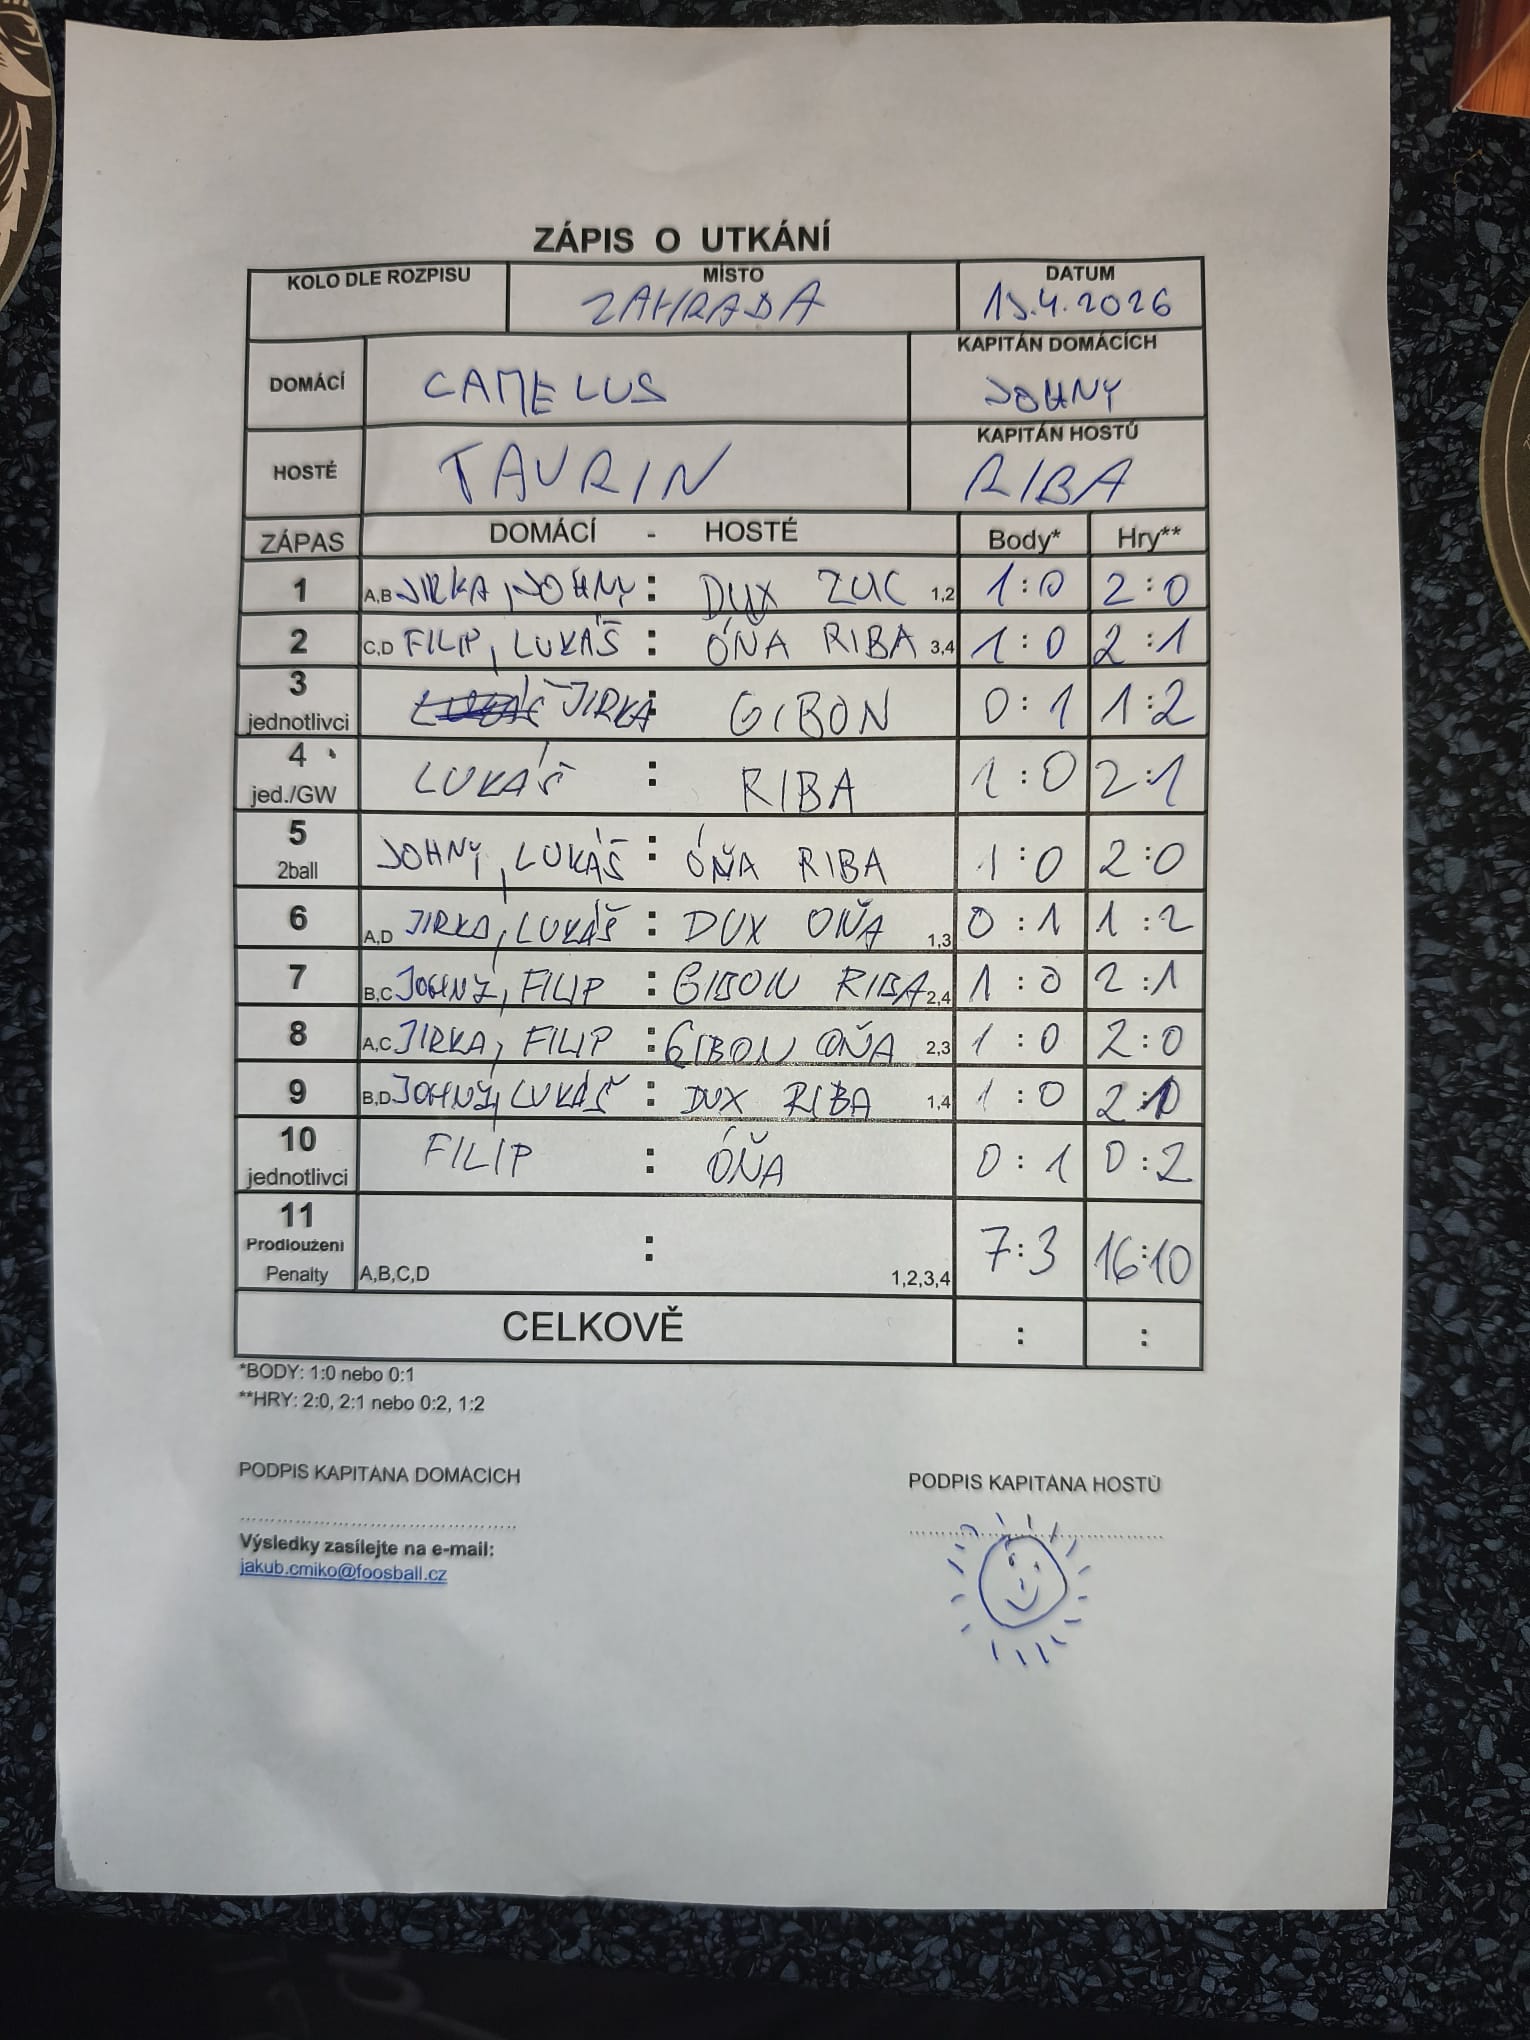 ZÁPIS O UTKÁNÍ
KOLO DLE ROZPISU MÍSTO DATUM
ZAHRADA 15.4.2026
DOMÁCÍ CAMELUS KAPITÁN DOMÁCÍCH
JOHNY
HOSTÉ TAURIN KAPITÁN HOSTŮ
RIBA
ZÁPAS DOMÁCÍ - HOSTÉ Body* Hry**
1 A,B JIRKA, JOHNY : DUX ZUC 1,2 1:0 2:0
2 C,D FILIP, LUKÁŠ : ÓNA RIBA 3,4 1:0 2:1
3 jednotlivci JIRKA : GIBON 0:1 1:2
4 jed./GW LUKÁŠ : RIBA 1:0 2:1
5 2ball JOHNY, LUKÁŠ : ÓŇA RIBA 1:0 2:0
6 A,D JIRKA, LUKÁŠ : DUX OŇA 1,3 0:1 1:2
7 B,C JOHNY, FILIP : GIBON RIBA 2,4 1:0 2:1
8 A,C JIRKA, FILIP : GIBON OŇA 2,3 1:0 2:0
9 B,D JOHNY, LUKÁŠ : DUX RIBA 1,4 1:0 2:
10 jednotlivci FILIP : ÓŇA 0:1 0:2
11 Prodloužení Penalty A,B,C,D : 1,2,3,4 7:3 16:10
CELKOVĚ : :
*BODY: 1:0 nebo 0:1
**HRY: 2:0, 2:1 nebo 0:2, 1:2
PODPIS KAPITÁNA DOMÁCÍCH PODPIS KAPITÁNA HOSTŮ
Výsledky zasílejte na e-mail:
jakub.cmiko@foosball.cz